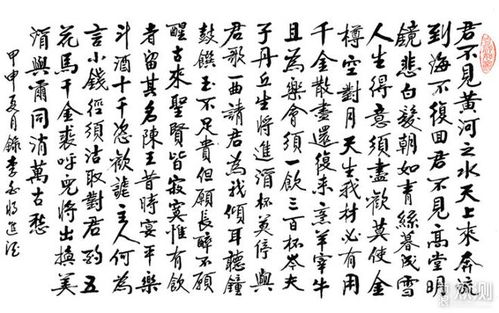 君不見黃河之水天上來奔流
到海不復回君不見高堂明
鏡悲白髮朝如青絲暮成雪
人生得意須盡歡莫使金
樽空對月天生我材必有用
千金散盡還復來烹羊宰牛
且為樂會須一飲三百杯岑夫
子丹丘生將進酒杯莫停與
君歌一曲請君為我傾耳聽鐘
鼓饌玉不足貴但願長醉不願
醒古來聖賢皆寂寞惟有飲
者留其名陳王昔時宴平樂
斗酒十千恣歡謔主人何為
言少錢徑須沽取對君酌五
花馬千金裘呼兒將出換美
酒與爾同消萬古愁
甲申夏月錄李白將進酒